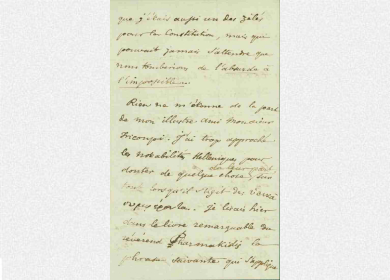 que j'étais aussi un des zélés
pour la Constitution, mais qui
pouvait jamais s'attendre que
nous tomberions de l'absurde à
l'impossible.
Rien ne m'étonne de la part
de mon illustre ami Monsieur
Tricoupi. J'ai trop approché
les notabilités helléniques pour
douter de quelque chose,
lorsqu'il s'agit des
Je lisais hier
dans le livre remarquable du
révérend Pharmakidès la
phrase suivante qui s'applique